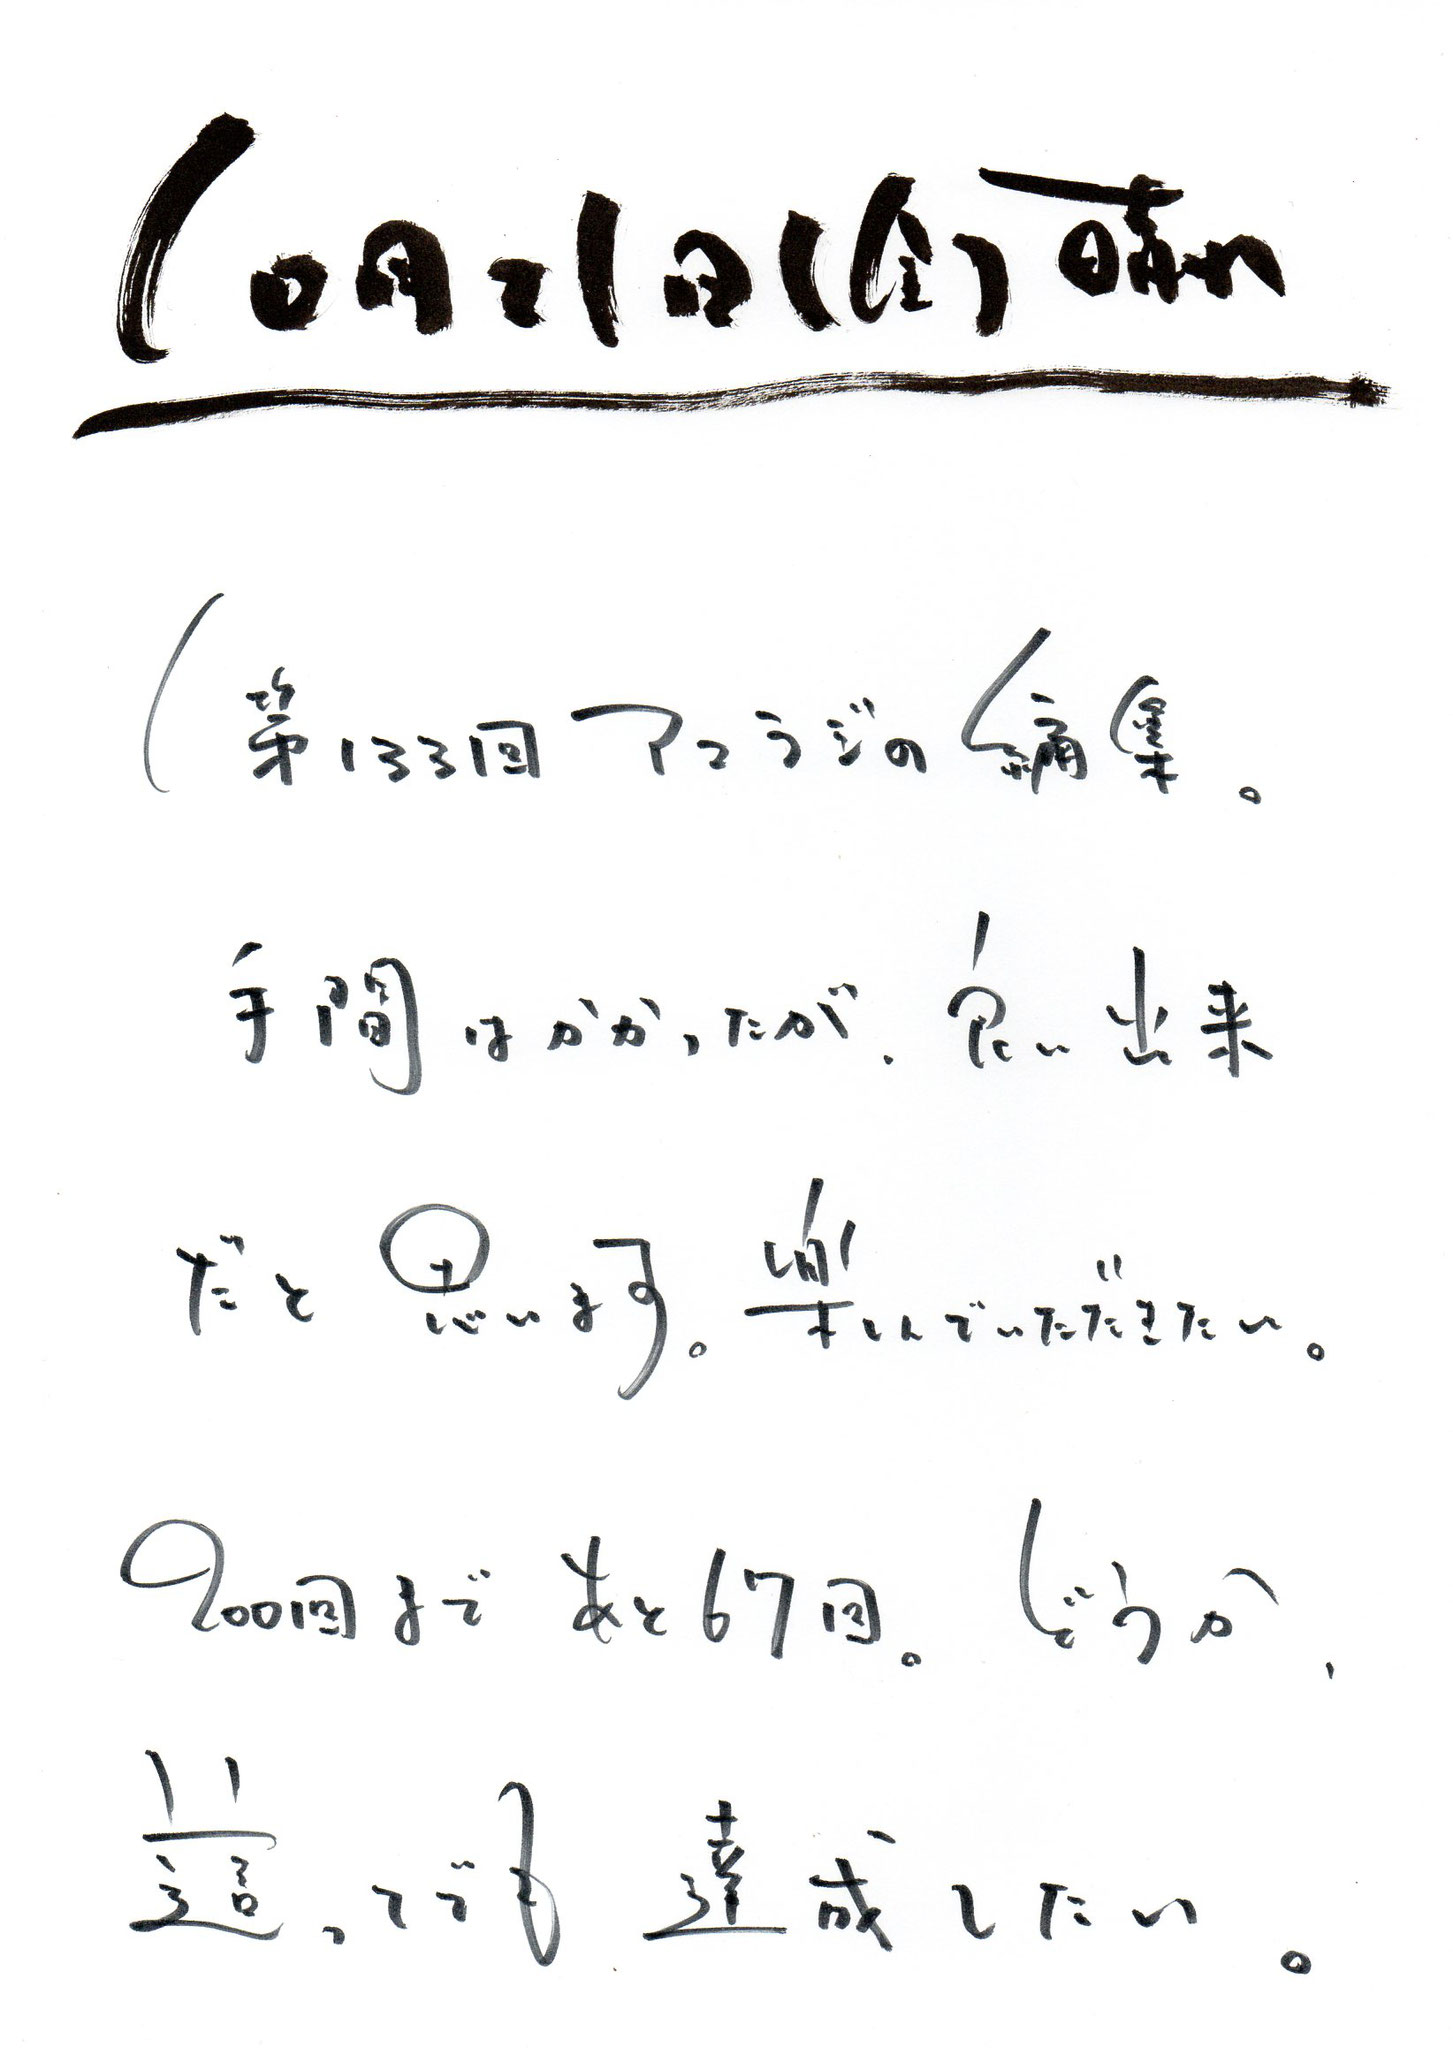 10月21日(金)晴れ
第133回アコラジの編集。
手間はかかったが、良い出来
だと思います。楽しんでいただきたい。
200回まであと67回。どうか、
這ってでも達成したい。